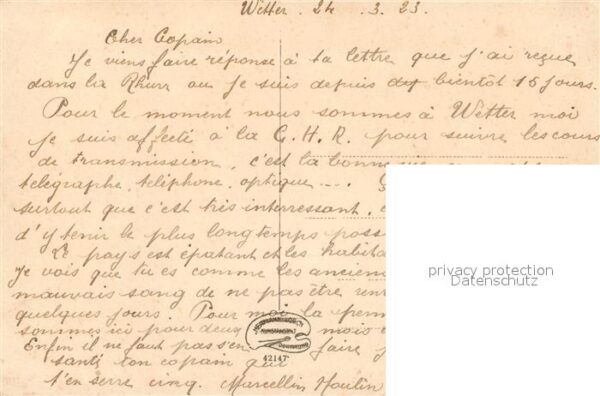 Wetter. 24 .3.23.
Cher Copain
Je viens faire réponse à ta lettre que j'ai reçue
dans la Rhurr ou je suis depuis bientôt 15 jours.
Pour le moment nous sommes à Wetter moi
je suis affecté à la C.H.R. pour suivre les cours
de transmission, c'est la bonne
telégraphe, téléphone, optique...
surtout que c'est très interressant,
d'y tenir le plus longtemps poss
Le pays est épatant et les habita
Je vois que tu es comme les anciens
mauvais sang de ne pas être
quelques jours. Pour moi la prem
sommes ici pour deux mois
Enfin il ne faut pas s'en faire
santé ton copain qui
t'en serre cinq. Marcellin Moulin
42147
privacy protection
Datenschutz